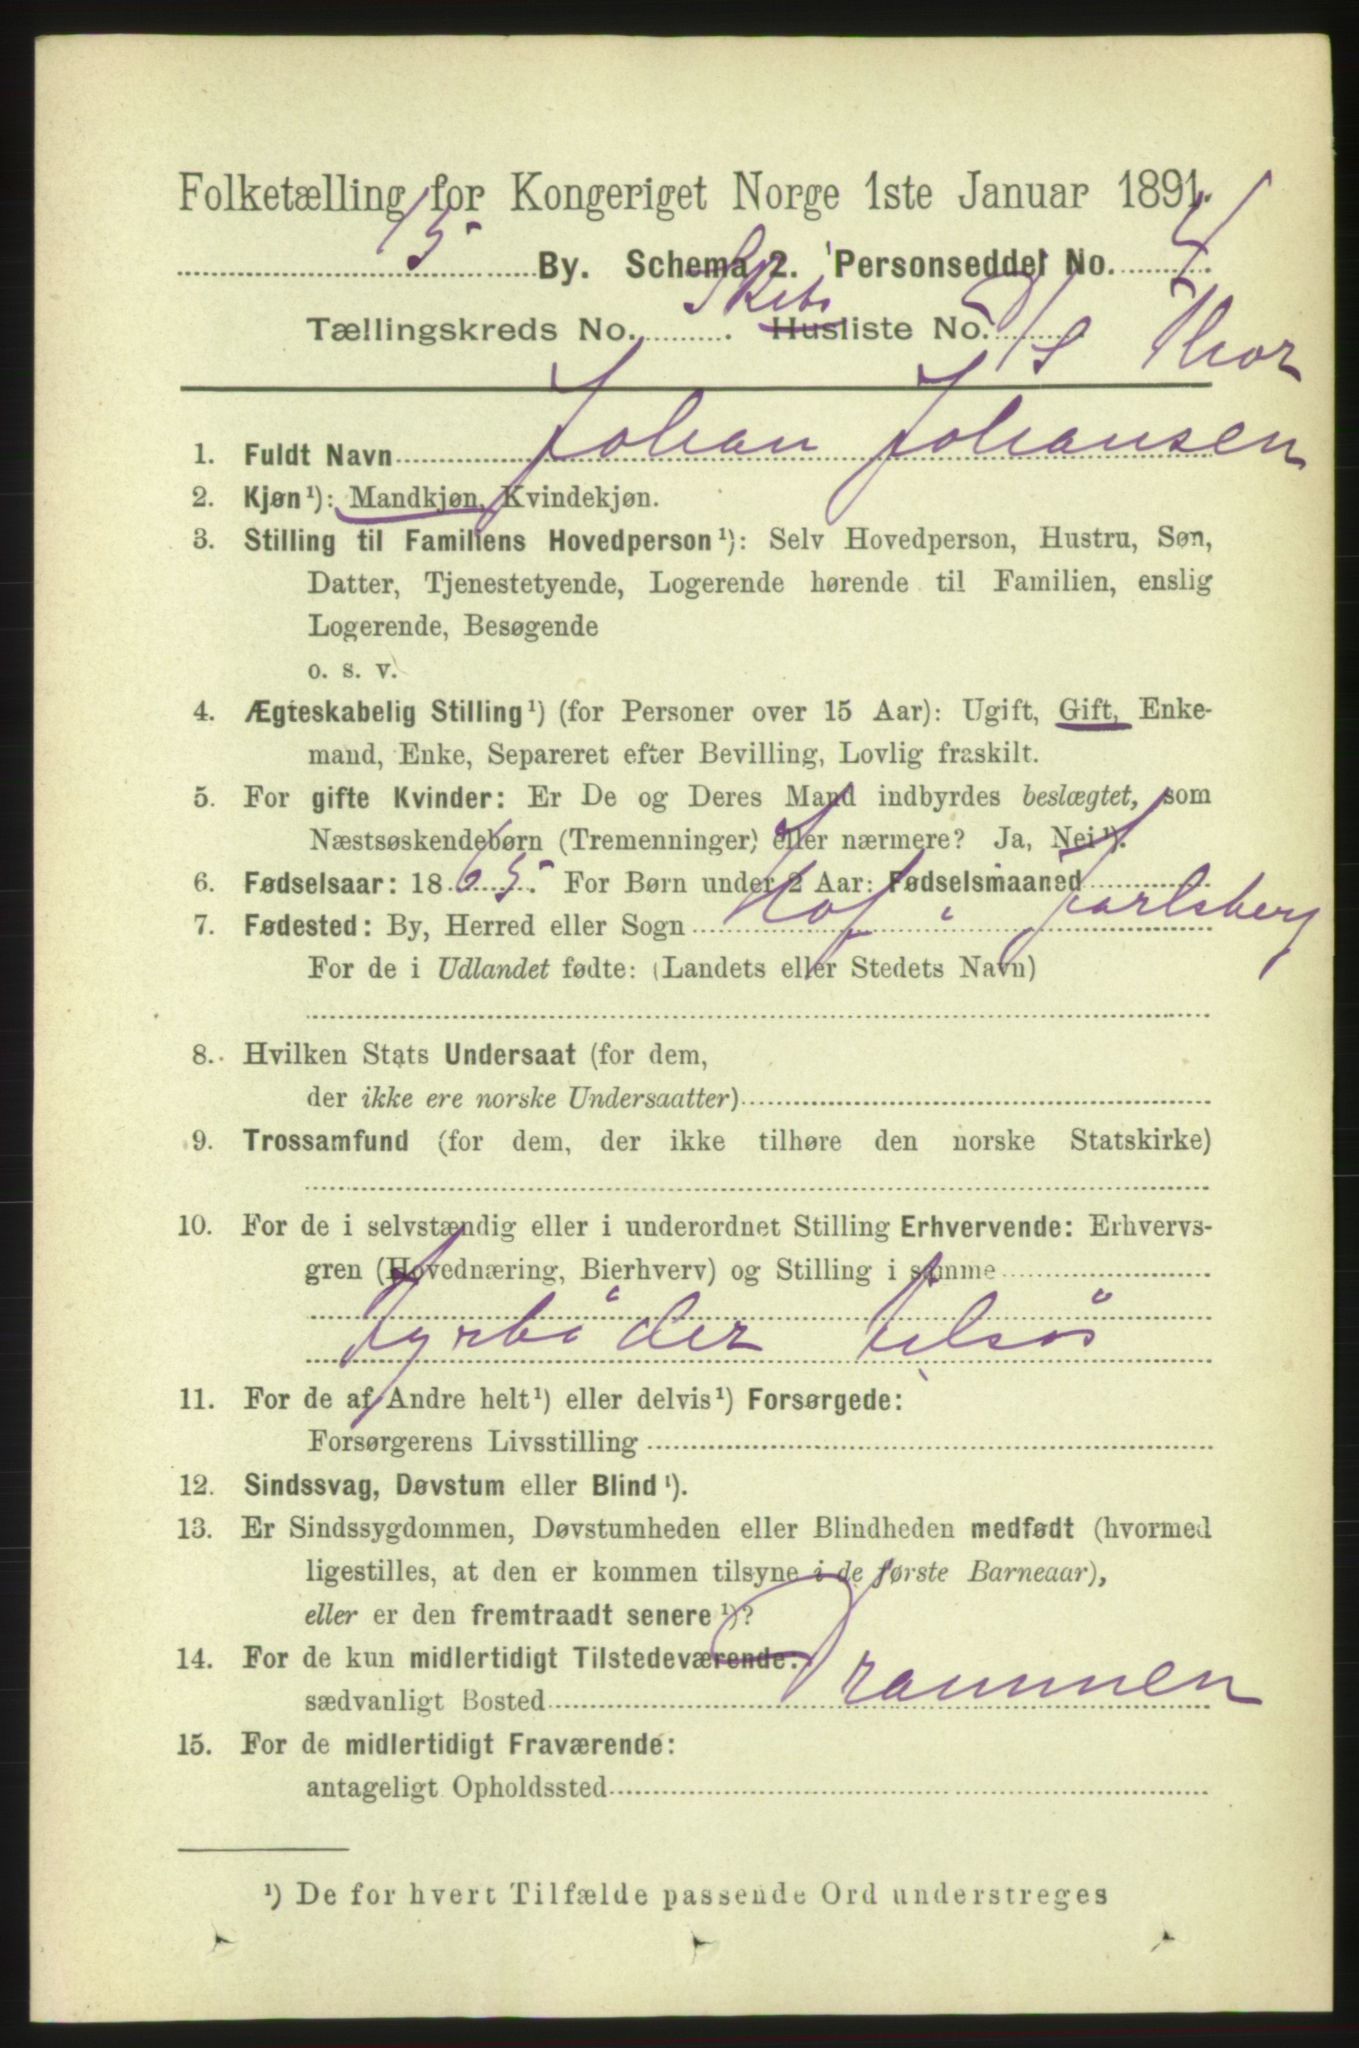 Folketælling for Kongeriget Norge 1ste Januar 1891.
15 By. Schema 2. Personseddel No. 4
Tællingskreds No. Skibs Husliste No. D/S Thor
1. Fuldt Navn Johan Johansen
2. Kjøn¹): Mandkjøn, Kvindekjøn.
3. Stilling til Familiens Hovedperson¹): Selv Hovedperson, Hustru, Søn,
Datter, Tjenestetyende, Logerende hørende til Familien, enslig
Logerende, Besøgende
o. s. v.
4. Ægteskabelig Stilling¹) (for Personer over 15 Aar): Ugift, Gift, Enke-
mand, Enke, Separeret efter Bevilling, Lovlig fraskilt.
5. For gifte Kvinder: Er De og Deres Mand indbyrdes beslægtet, som
Næstsøskendebørn (Tremenninger) eller nærmere? Ja, Nei¹).
6. Fødselsaar: 1865. For Børn under 2 Aar: Fødselsmaaned
7. Fødested: By, Herred eller Sogn Hof i Jarlsberg
For de i Udlandet fødte: (Landets eller Stedets Navn)
8. Hvilken Stats Undersaat (for dem,
der ikke ere norske Undersaatter)
9. Trossamfund (for dem, der ikke tilhøre den norske Statskirke)
10. For de i selvstændig eller i underordnet Stilling Erhvervende: Erhvervs-
gren (Hovednæring, Bierhverv) og Stilling i samme
Fyrbøder tilsøs
11. For de af Andre helt¹) eller delvis¹) Forsørgede:
Forsørgerens Livsstilling
12. Sindssvag, Døvstum eller Blind¹).
13. Er Sindssygdommen, Døvstumheden eller Blindheden medfødt (hvormed
ligestilles, at den er kommen tilsyne i de første Barneaar),
eller er den fremtraadt senere¹)?
14. For de kun midlertidigt Tilstedeværende:
sædvanligt Bosted Drammen
15. For de midlertidigt Fraværende:
antageligt Opholdssted
¹) De for hvert Tilfælde passende Ord understreges